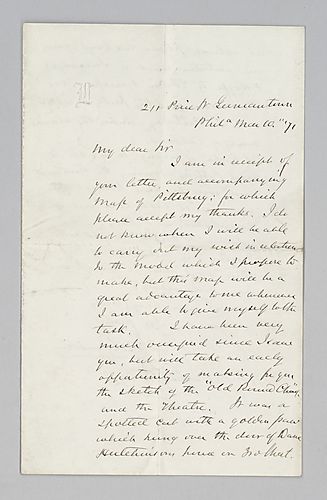 211 Price St Germantown
Phila Mar 10" '71
My dear Sir
I am in receipt of
your letter and accompanying
Map of Pittsburg; for which
please accept my thanks. I do
not know when I will be able
to carry out my wish in relation
to the model which I propose to
make, but this map will be a
great advantage to me whenever
I am able to give myself to the
task. I have been very
much occupied since I saw
you, but will take an early
opportunity of making for you
the sketch of the "Old
and the Theatre. It was a
spotted cat with a golden
which hung over the door of Dame
Hutchinsons house on 3rd Street.